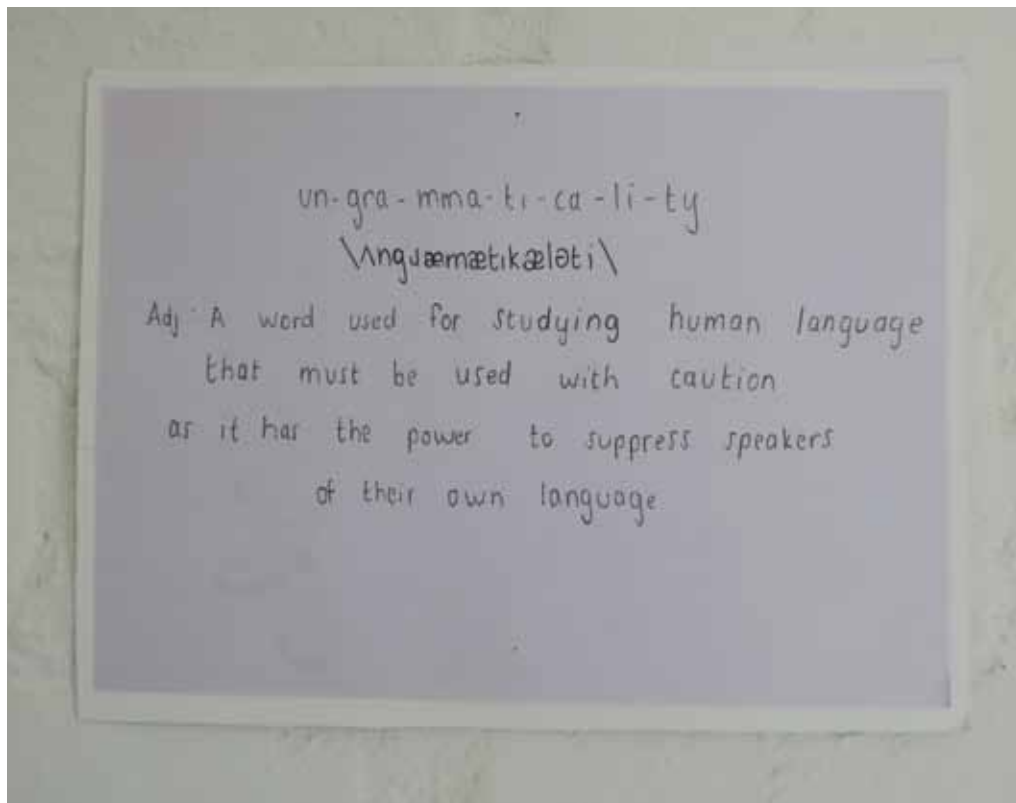 un-gra-mma-ti-ca-li-ty
\ʌngɹæmætɪkæləti\
Adj: A word used for studying human language
that must be used with caution
as it has the power to suppress speakers
of their own language